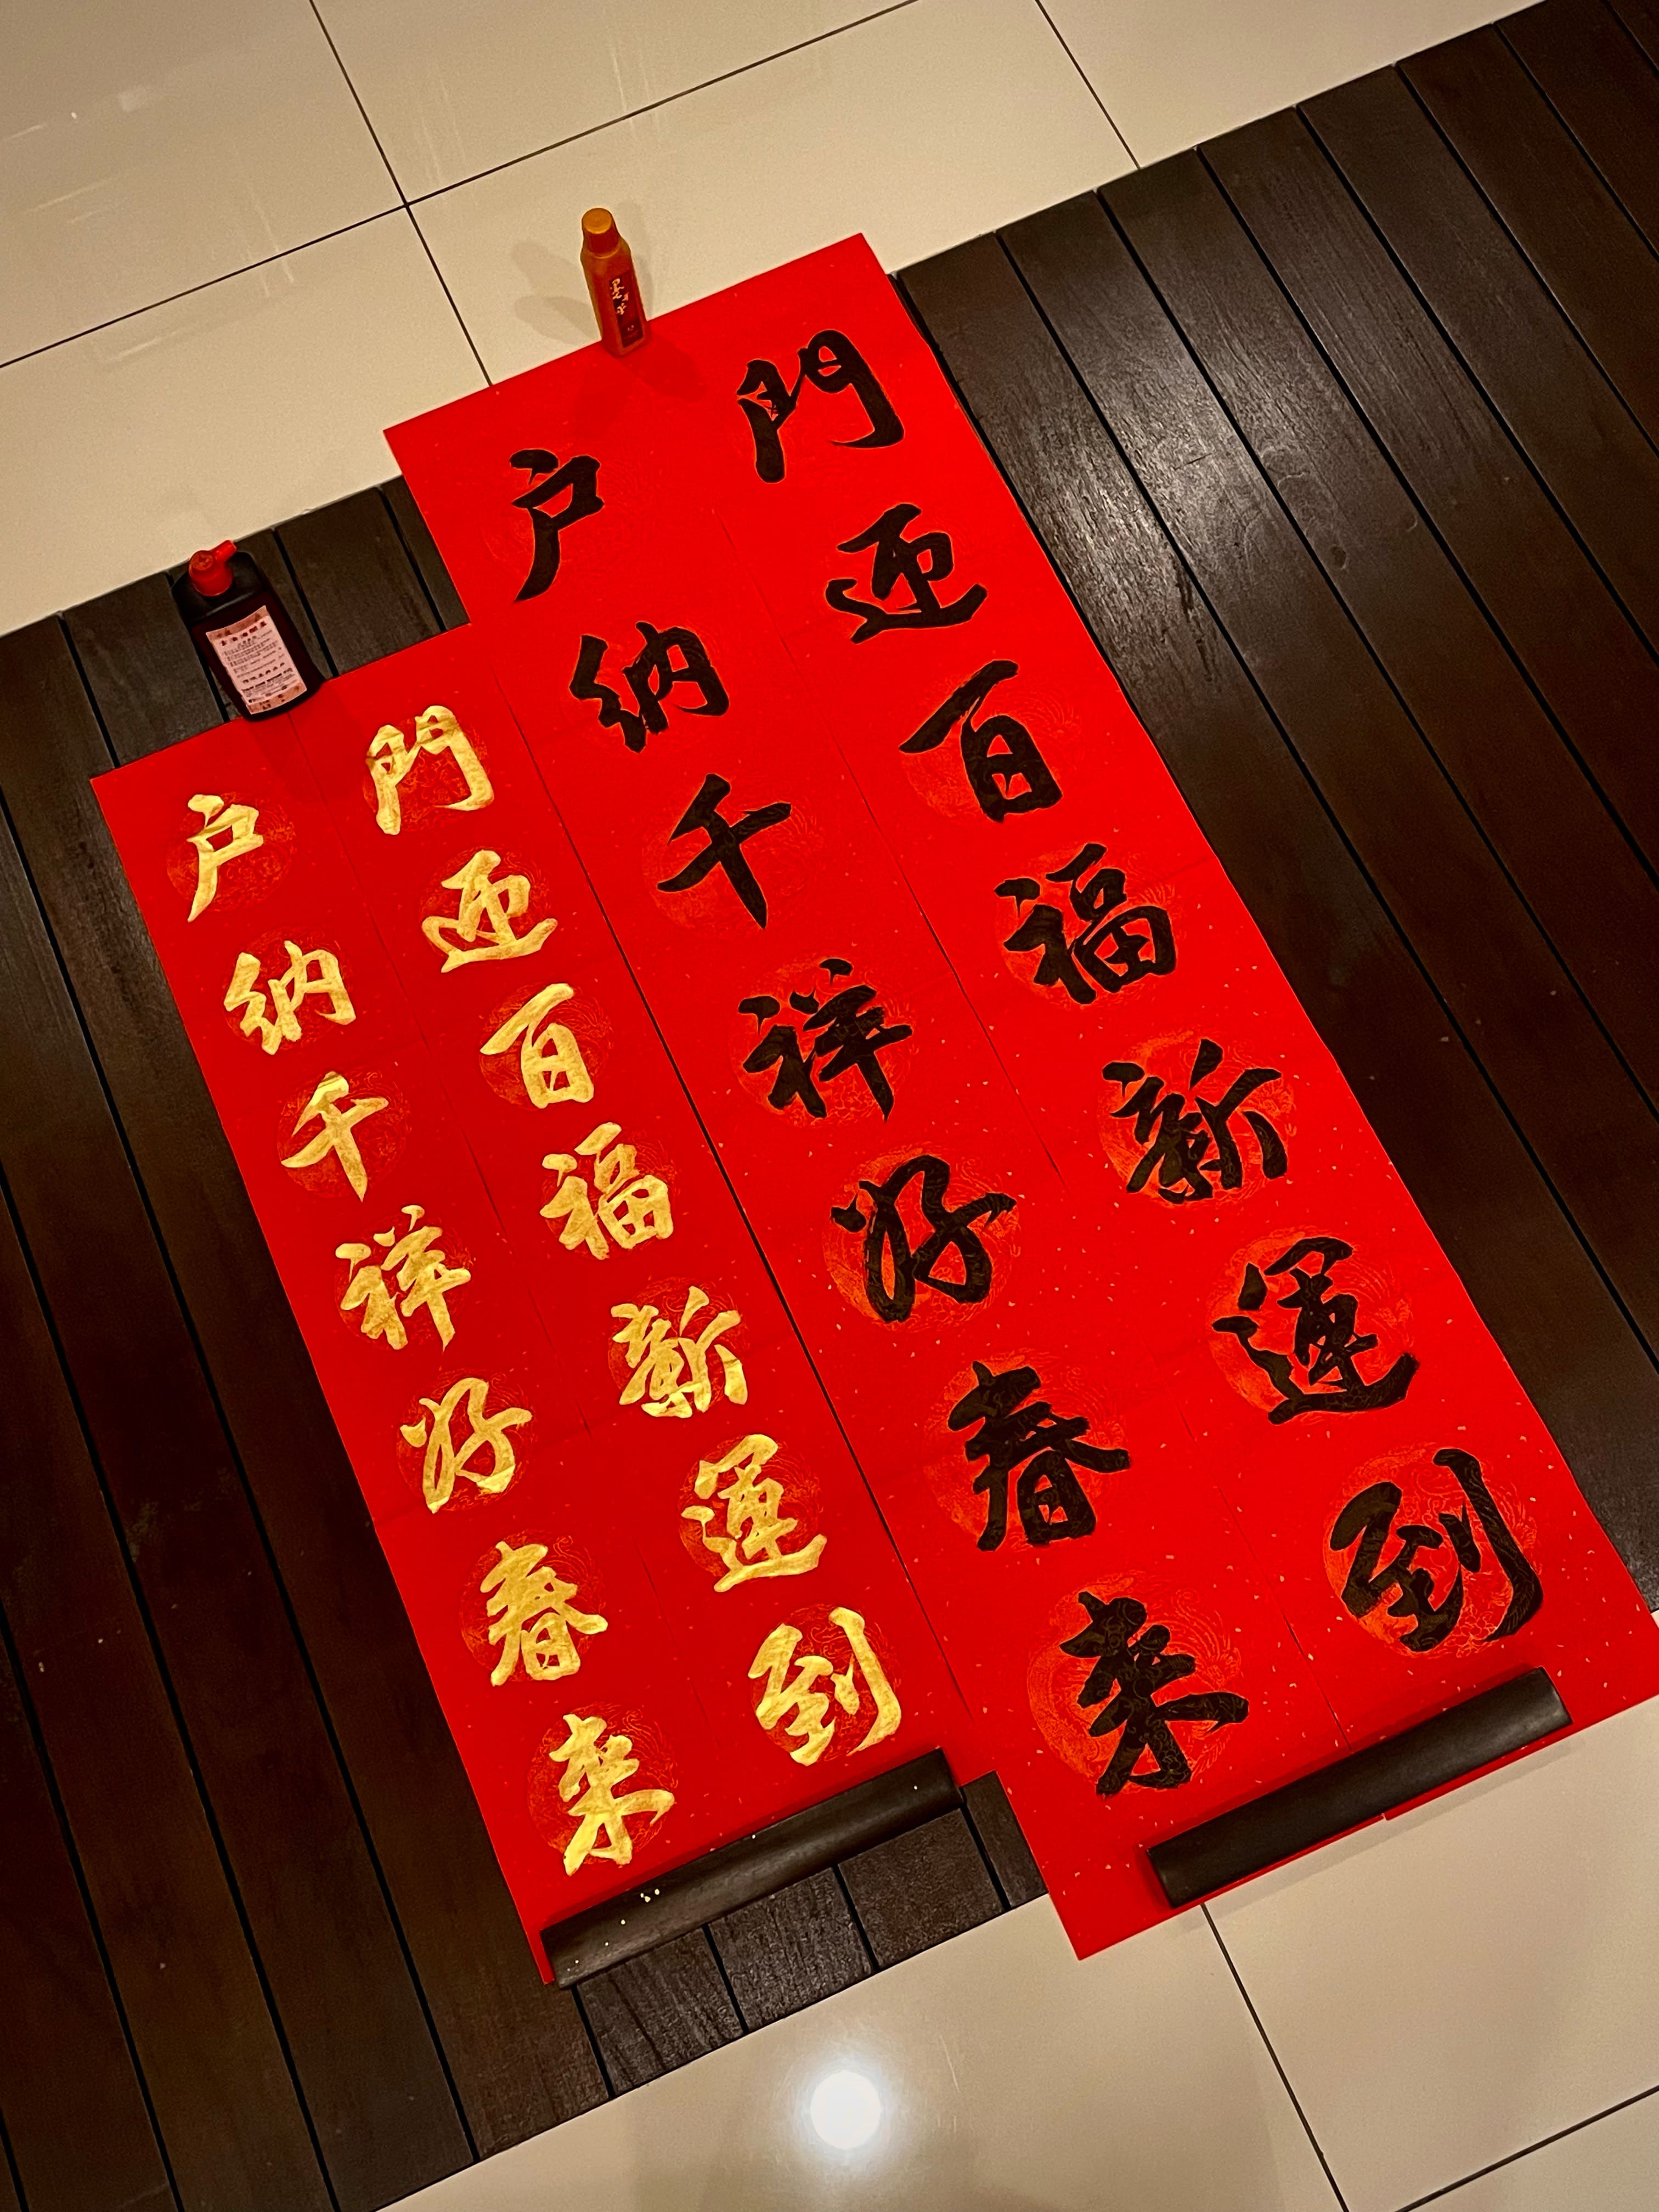 門迎百福新運到
户納千祥好春來
門迎百福新運到
户納千祥好春來
墨